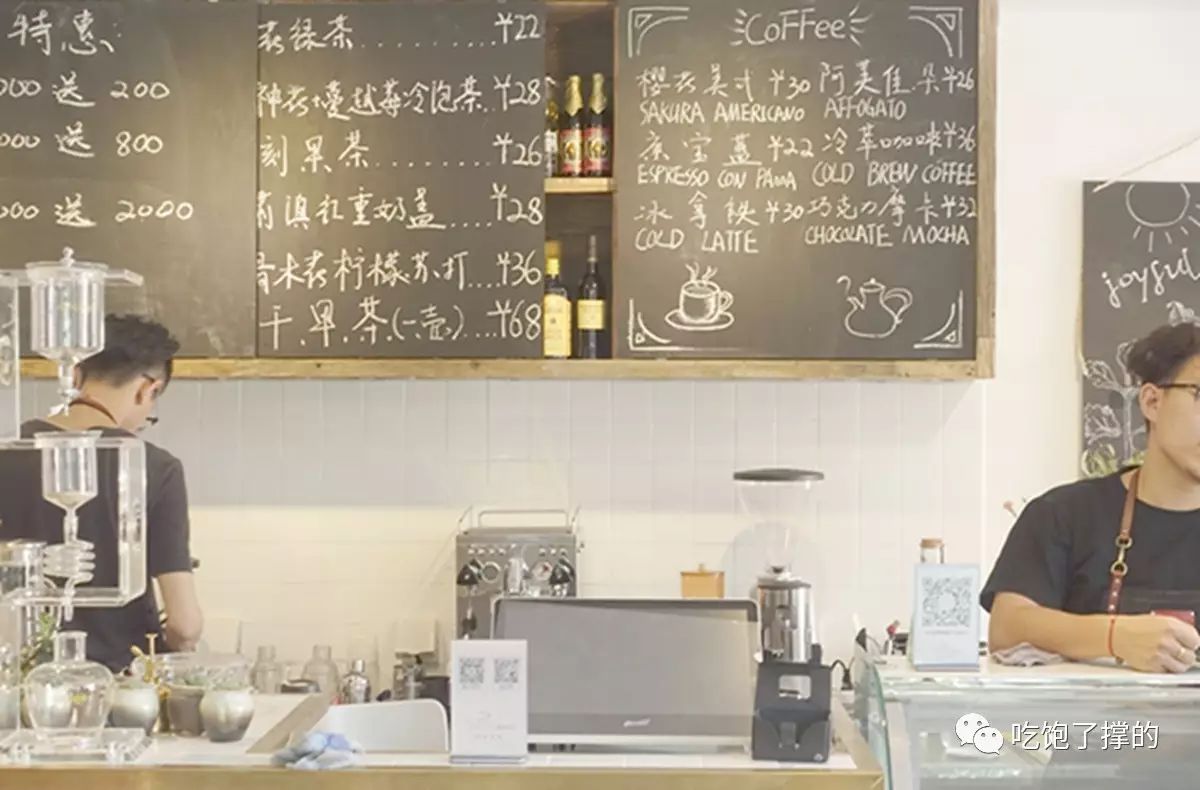 特惠
000 送 200
000 送 800
000 送 2000
绿茶..........¥22
神农蔓越莓冷泡茶..¥28
刻果茶........¥26
滇红重奶盖....¥28
木春柠檬苏打...¥36
干.早.茶.(一壶)....¥68
CoFFee
樱花美式 ¥30 阿芙佳朵 ¥26
SAKURA AMERICANO AFFOGATO
康宝蓝 ¥22 冷萃咖啡 ¥36
ESPRESSO CON PANNA COLD BREW COFFEE
冰拿铁 ¥30 巧克力摩卡 ¥32
COLD LATTE CHOCOLATE MOCHA
joyful
吃饱了撑的